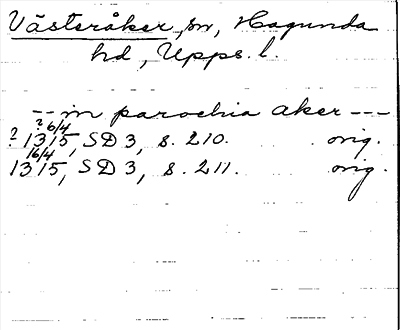 Västeråker, sn, Hagunda
hd, Upps. l.
--- in parochia aker ---
? 6/4
? 1315, SD 3, s. 210. orig.
16/4
1315, SD 3, s. 211. orig.